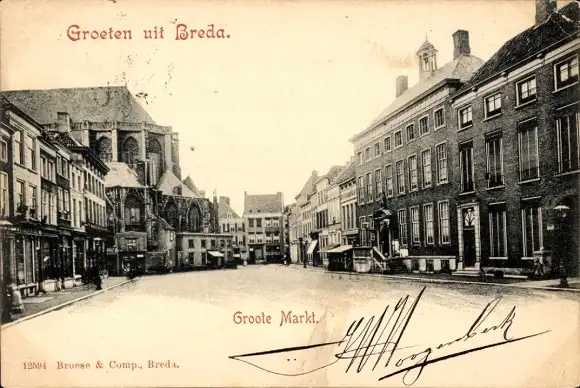 Groeten uit Breda.
Groote Markt.
Hoogenberk
12594 Broese & Comp., Breda.